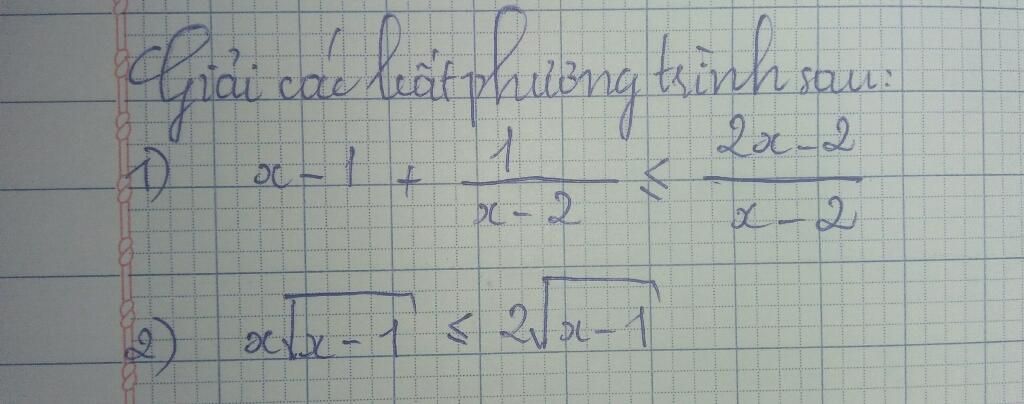 Giải các bất phương trình sau:
1) x - 1 + \frac{1}{x - 2} ≤ \frac{2x - 2}{x - 2}
2) x\sqrt{x - 1} ≤ 2\sqrt{x - 1}